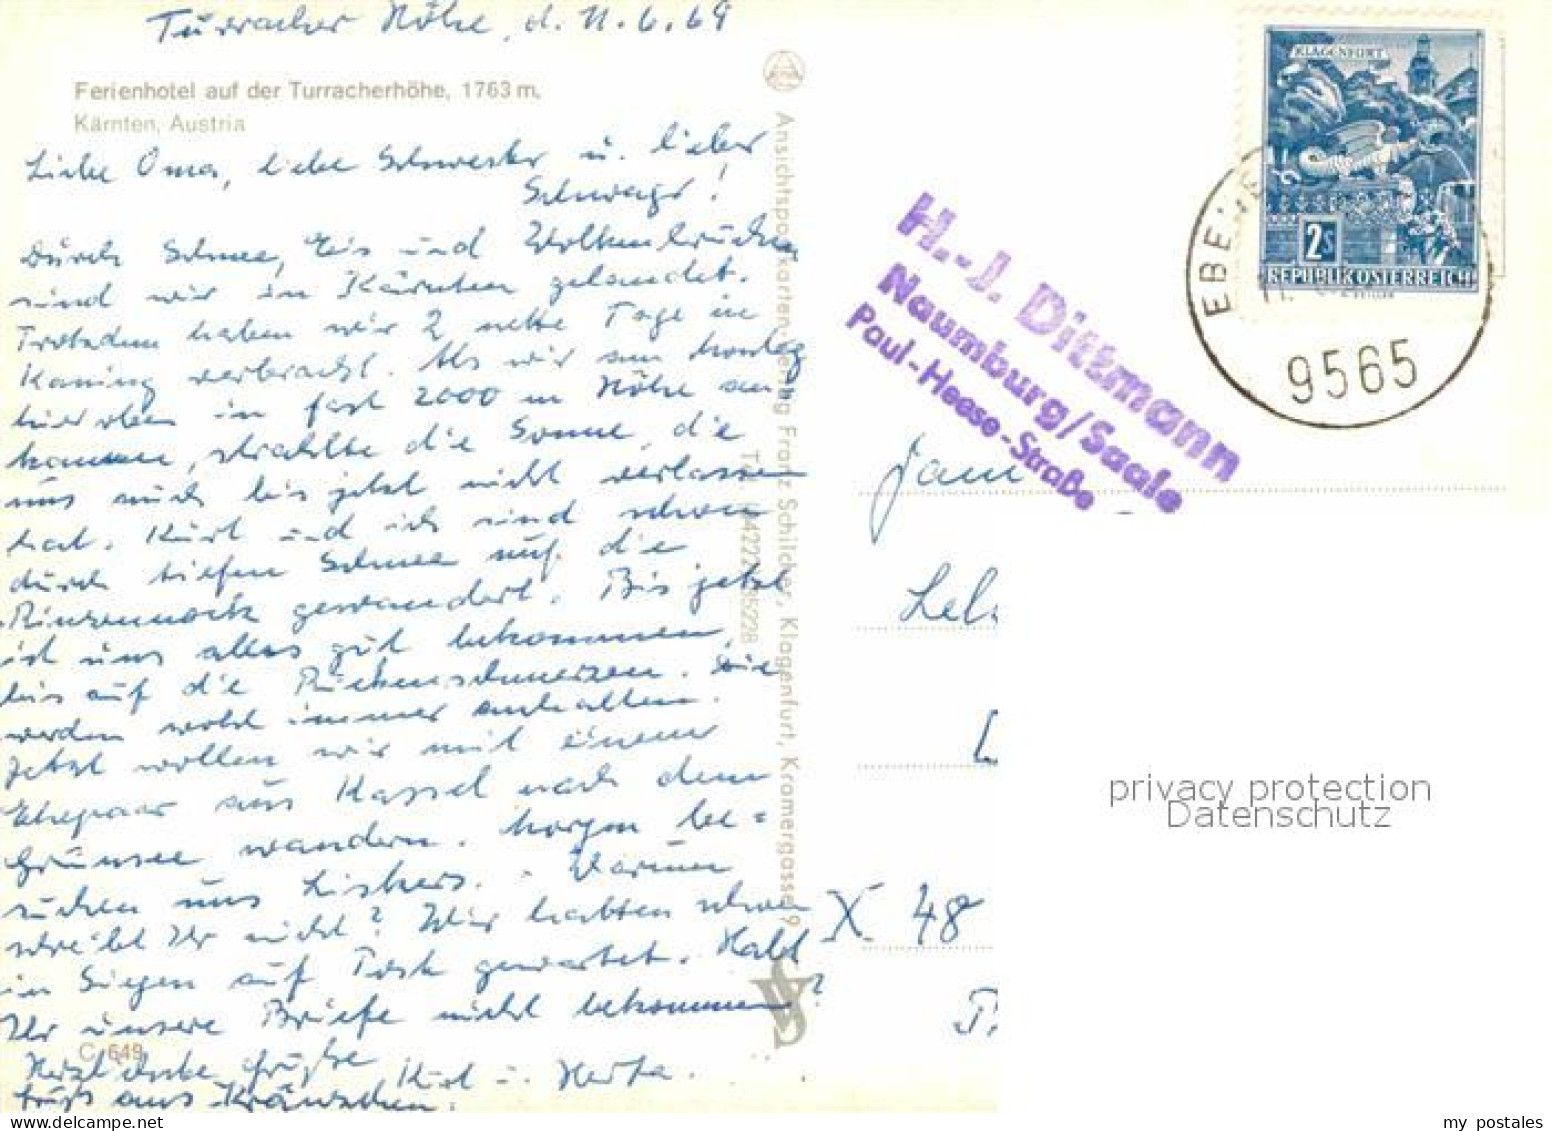 Turracher Höhe, d. 11.6.69
Ferienhotel auf der Turracherhöhe, 1763 m,
Kärnten, Austria
Liebe Oma, liebe Schwester u. lieber
Schwager!
Durch Schnee, Eis und Wolkenbrüche
sind wir in Kärnten gelandet.
Trotzdem haben wir 2 nette Tage in
Kaning verbracht. Als wir am Montag
hier oben in fast 2000 m Höhe an
kamen, strahlte die Sonne, die
uns auch bis jetzt nicht verlassen
hat. Kurt und ich sind schon
durch tiefen Schnee auf die
Rinsennock gewandert. Bis jetzt
ist uns alles gut bekommen,
bis auf die Rückenschmerzen. Die
werden wohl immer anhalten.
Jetzt wollen wir mit einem
Ehepaar aus Kassel nach dem
Grünsee wandern. Morgen be=
suchen uns Liskers. - Warum
schreibt Ihr nicht? Wir hatten schon
in Siegen auf Post gewartet. Habt
Ihr unsere Briefe nicht bekommen?
Herzlichste Grüße Kurt u. Herta.
C 649
Ansichtspostkarten-Verlag Franz Schilcher, Klagenfurt, Kramergasse 9
KLAGENFURT
2 S
REPUBLIK ÖSTERREICH
9565
H.-J. Dittmann
Naumburg/Saale
Paul-Heese-Straße
Fam
X 48
privacy protection
Datenschutz
my postales